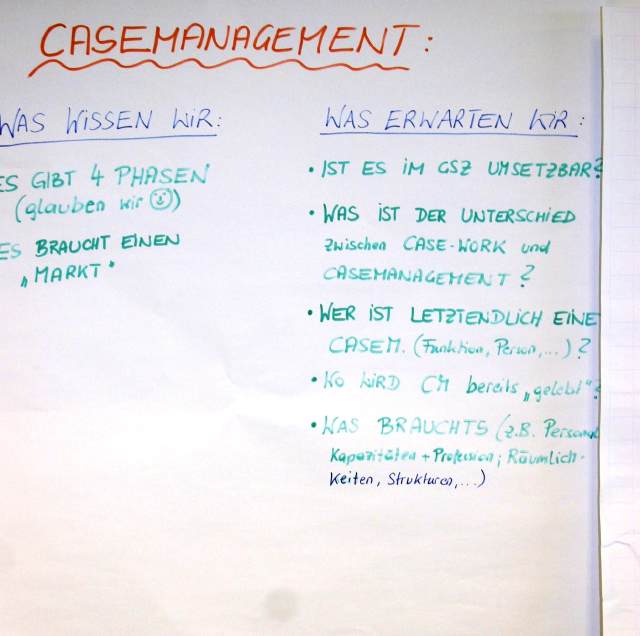 CASEMANAGEMENT:
WAS WISSEN WIR:
ES GIBT 4 PHASEN
(glauben wir ☺)
ES BRAUCHT EINEN
„MARKT“
WAS ERWARTEN WIR:
• IST ES IM GSZ UMSETZBAR?
• WAS IST DER UNTERSCHIED
zwischen CASE-WORK und
CASEMANAGEMENT?
• WER IST LETZTENDLICH EINE
CASEM. (Funktion, Person,...)?
• WO WIRD CM bereits „gelebt“?
• WAS BRAUCHTS (z.B. Personal
Kapazitäten + Profession; Räumlich-
Keiten, Strukturen,...)